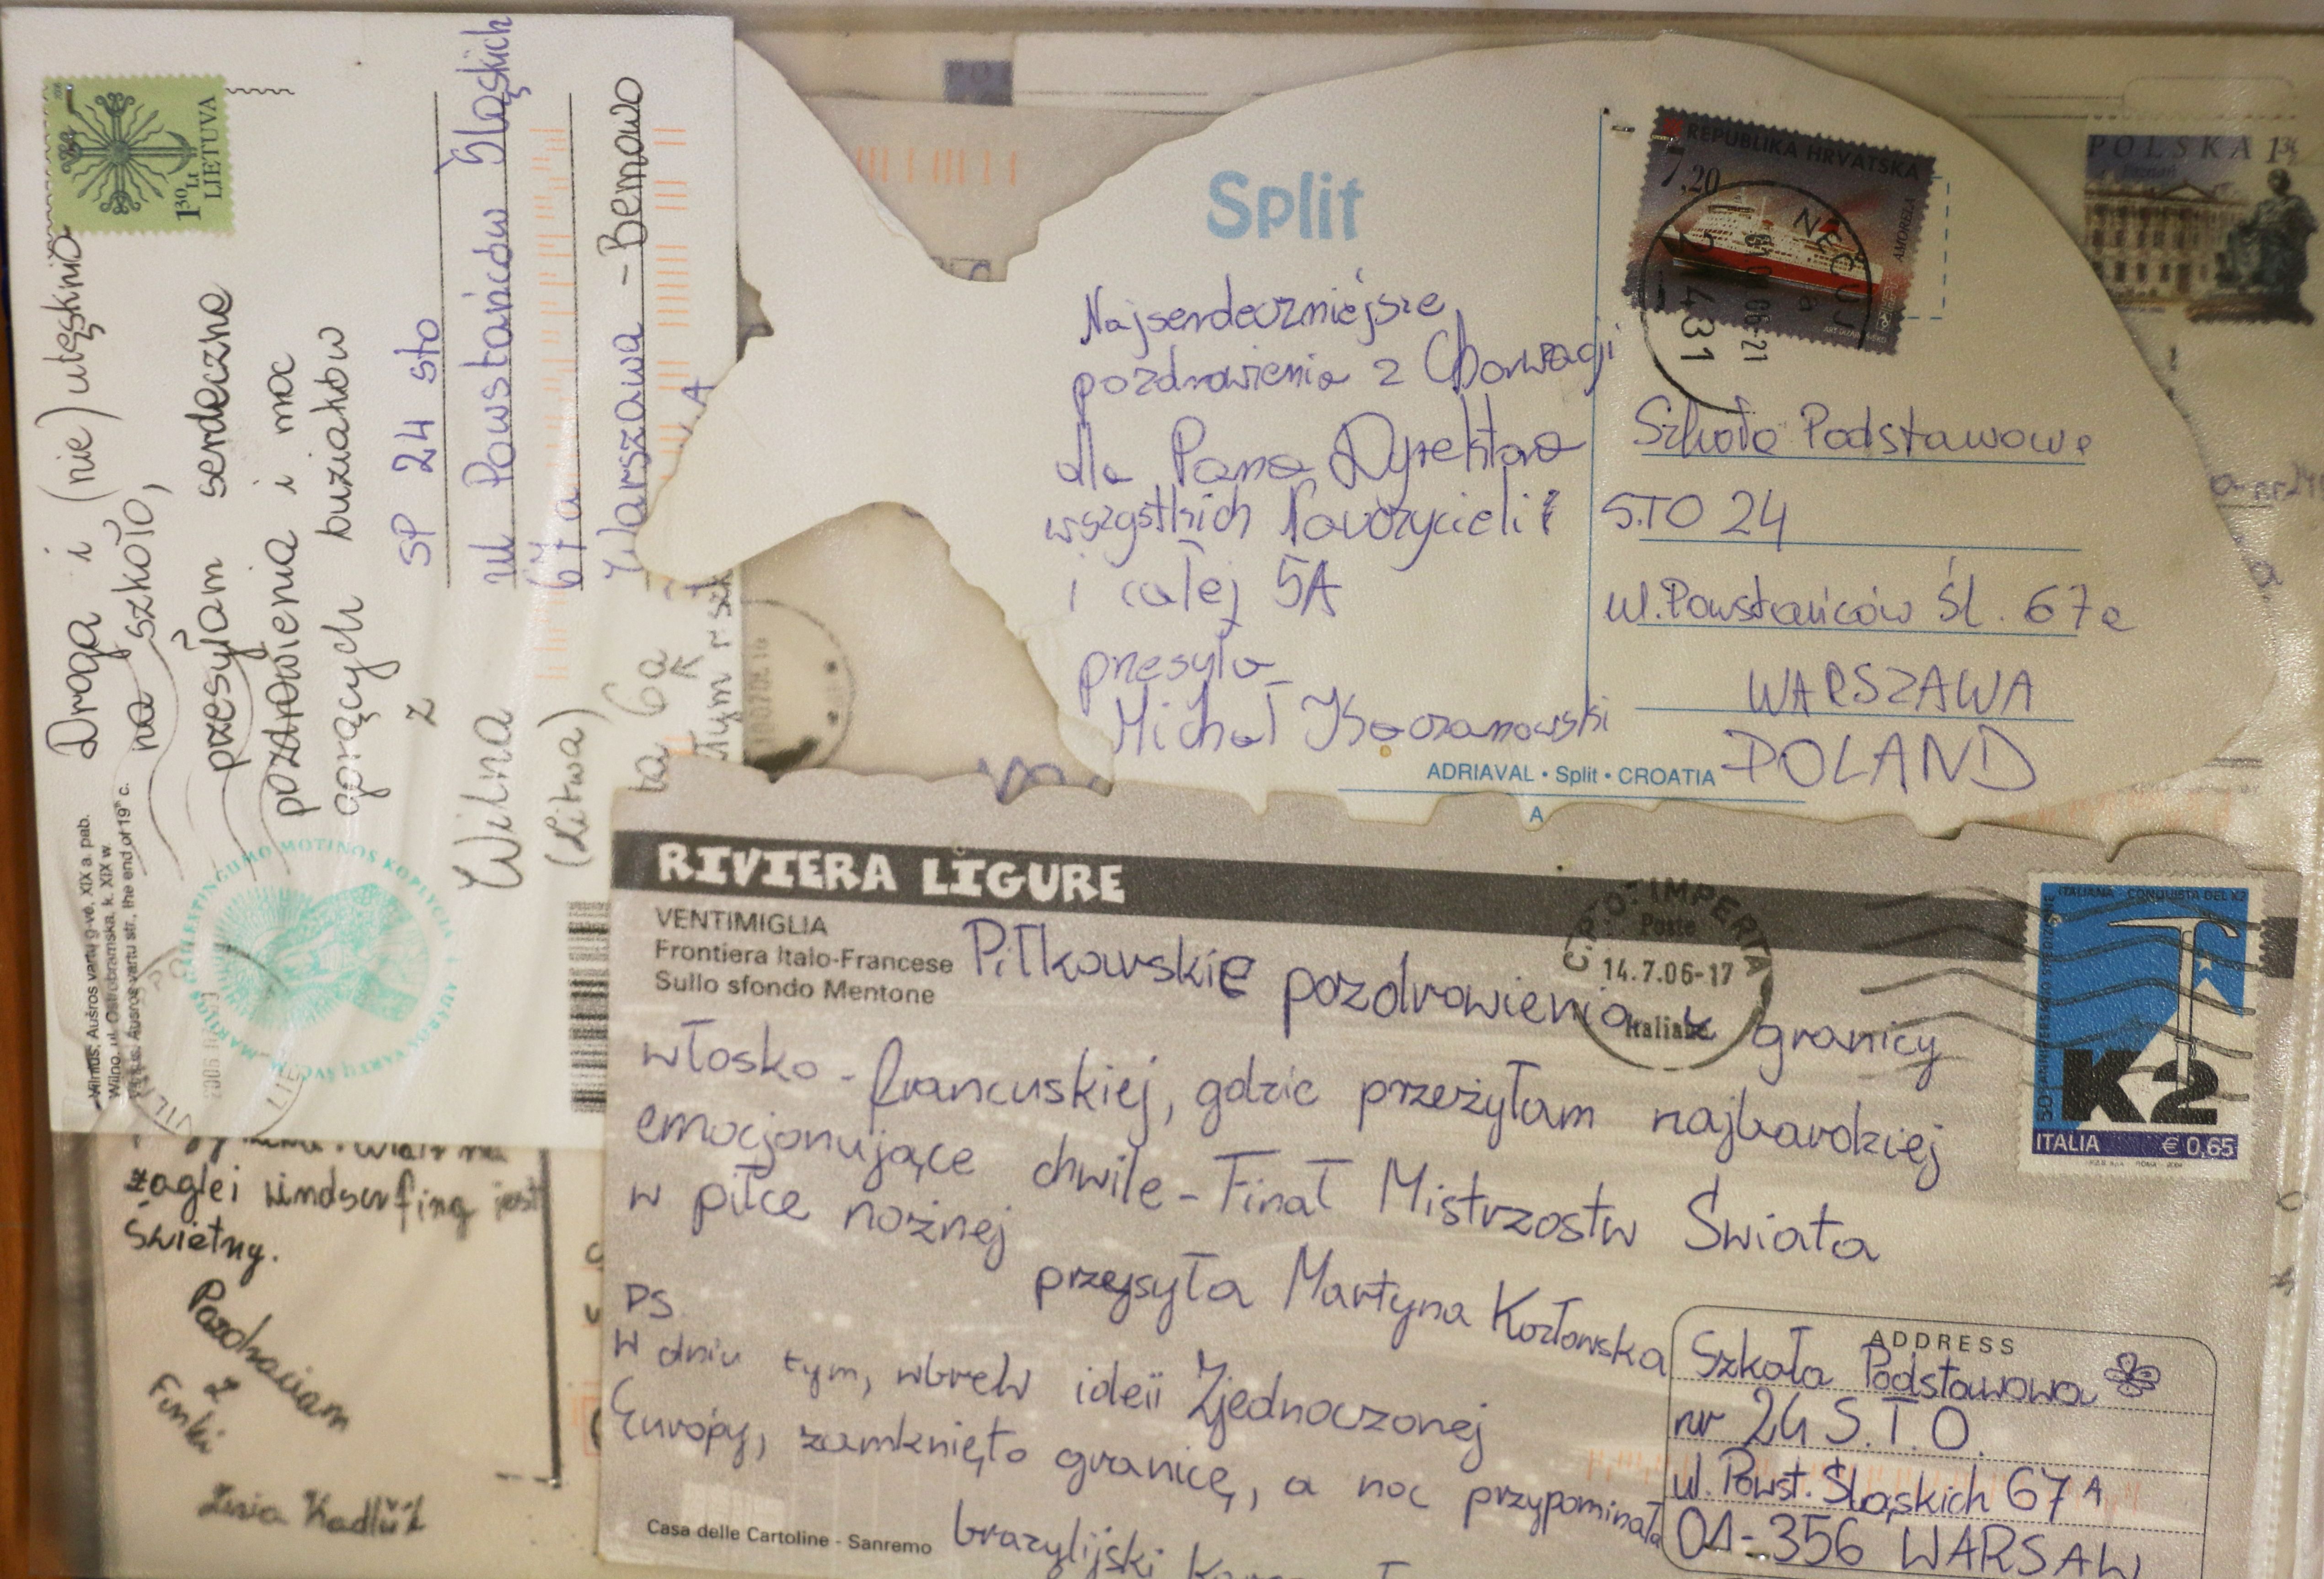 Droga i (nie) utęskniona
na szkoło,
przesyłam serdeczne
pozdrowienia i moc
gorących buziaków
z
Wilna
(Litwa)
SP 24 sto
ul Powstańców Śląskich
67a
Warszawa - Bemowo
130 Lt
LIETUVA
Vilnius. Aušros vartų g-vė. XIX a. pab.
Wilno. ul. Ostrobramska. k. XIX w.
Aušros vartų str., the end of 19th c.
6a
Split
Najserdeczniejsze
pozdrowienia z Chorwacji
dla Pana Dyrektora
wszystkich Nauczycieli
i całej 5A
przesyła
Michał Koczanowski
REPUBLIKA HRVATSKA
7,20
AMORELA
21431
Szkoła Podstawowa
STO 24
ul. Powstańców Śl. 67a
WARSZAWA
POLAND
ADRIAVAL • Split • CROATIA
A
POLSKA 130
Poznań
RIVIERA LIGURE
VENTIMIGLIA
Frontiera Italo-Francese
Sullo sfondo Mentone
Piłkarskie pozdrowienia z granicy
włosko - francuskiej, gdzie przeżyłam najbardziej
emocjonujące chwile - Finał Mistrzostw Świata
w piłce nożnej
przesyła Martyna Kozłowska
PS.
W dniu tym, wbrew ideii Zjednoczonej
Europy, zamknięto granicę, a noc przypominała
brazylijski
Casa delle Cartoline - Sanremo
C.P.O. IMPERIA
Poste
14.7.06-17
Italiane
ITALIANA - CONQUISTA DEL K2
K2
ITALIA € 0,65
ADDRESS
Szkoła Podstawowa
nr 24 S.T.O.
ul. Powst. Śląskich 67A
01-356 WARSAW
żagle i windsurfing jest
świetny.
Pozdrawiam
z
Finki
Zusia